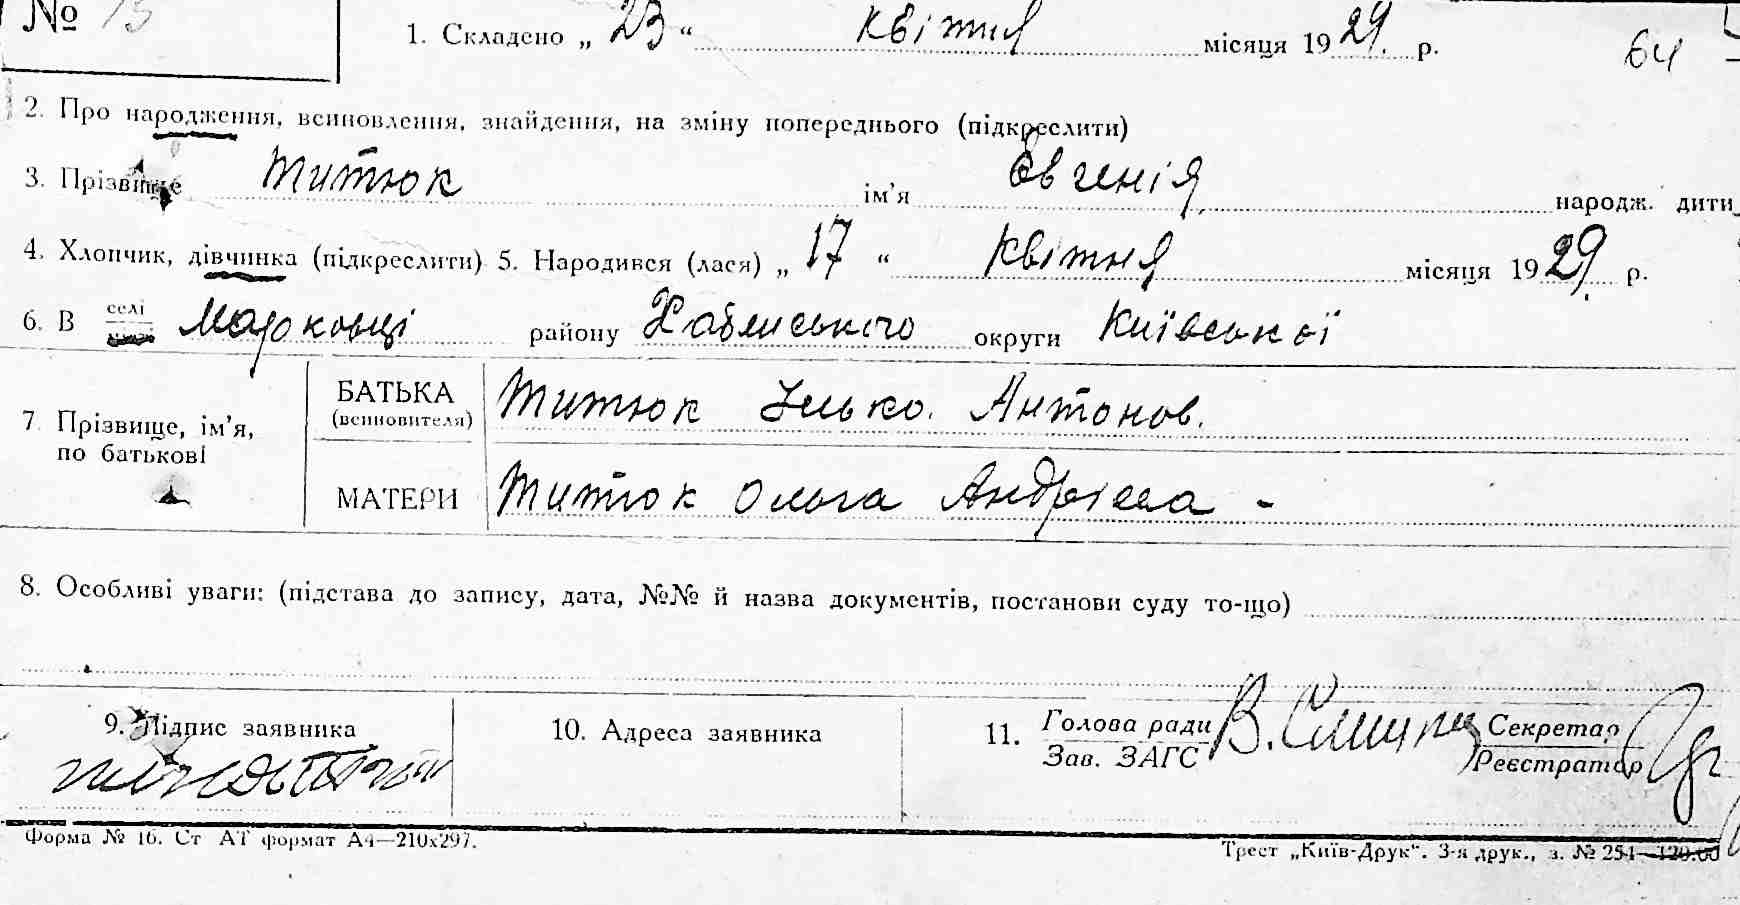 № 15
1. Складено „ 23 “ квітня місяця 1929. р.
64
2. Про народження, всиновлення, знайдення, на зміну попереднього (підкреслити)
3. Прізвище Титюк ім'я Євгенія народж. дити
4. Хлопчик, дівчинка (підкреслити) 5. Народився (лася) „ 17 “ квітня місяця 1929. р.
6. В селі Марковці району Хаблиського округи Київської
7 Прізвище, ім'я, по батькові
БАТЬКА (всиновителя) Титюк Ілько. Антонов.
МАТЕРИ Титюк Ольга Андріева -
8. Особливі уваги: (підстава до запису, дата, №№ й назва документів, постанови суду то-що)
9. Підпис заявника
10. Адреса заявника
11. Голова ради Зав. ЗАГС В. Секретар Реєстратор
Форма № 16. Ст АТ формат А4—210х297.
Трест „Київ-Друк“. 3-я друк., з. № 254